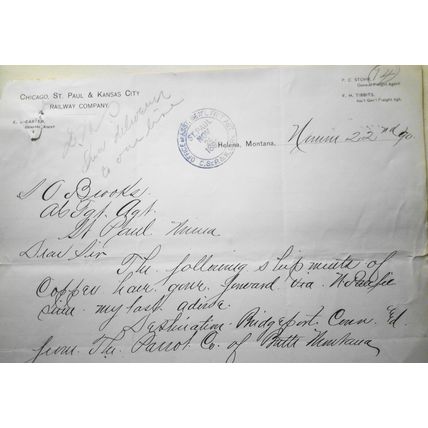 CHICAGO, ST. PAUL & KANSAS CITY
RAILWAY COMPANY.
P. C. STOHR,
General Freight Agent
(14)
General Agent
Ass't Gen'l Freight Agt.
to one line
Helena, Montana, 22nd 90.
S O Brooks
As Fgt. Agt.
St Paul Minn
Dear Sir
The following shipments of
Copper have gone forward via N Pacific
since my last advice.
Destination Bridgeport Conn
from The Parrot Co. of Butte Montana